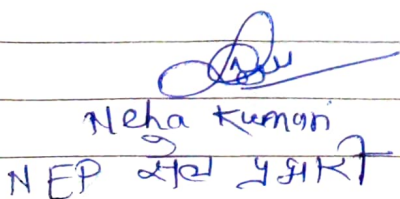 Neha Kumari
NEP सेल प्रभारी